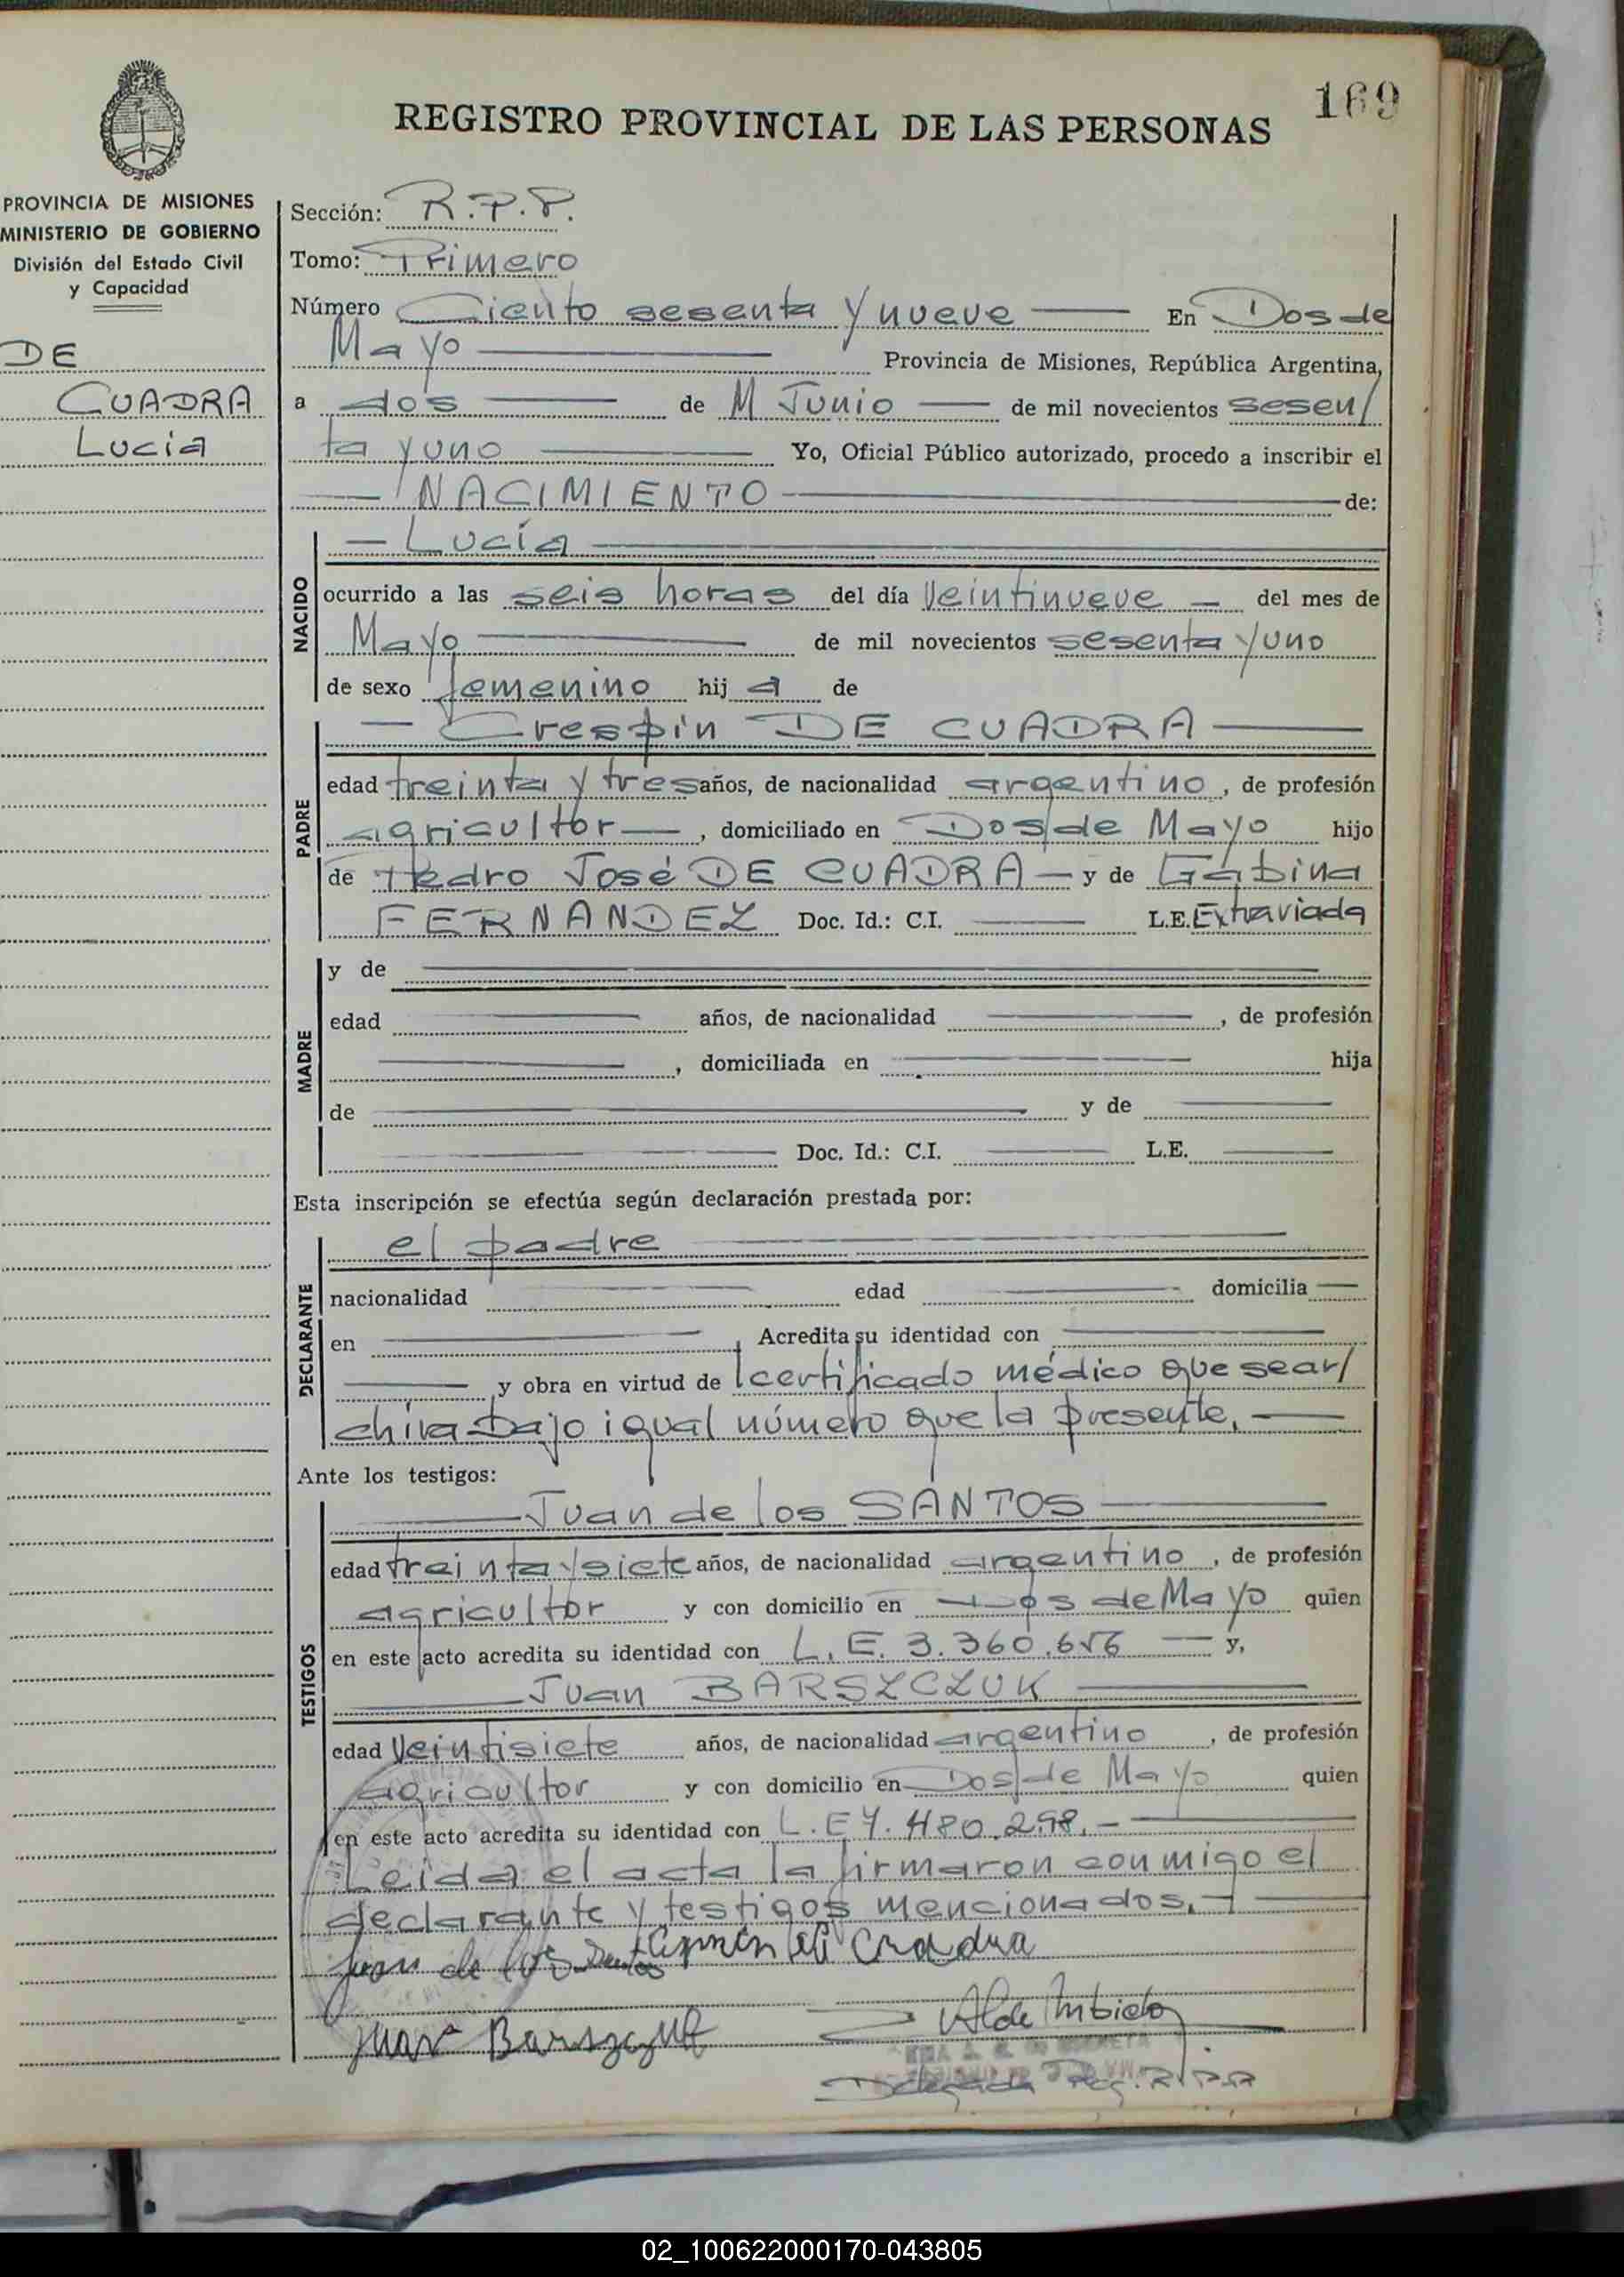 169
REGISTRO PROVINCIAL DE LAS PERSONAS
PROVINCIA DE MISIONES
MINISTERIO DE GOBIERNO
División del Estado Civil
y Capacidad
DE
CUADRA
Lucía
Sección: R.P.P.
Tomo: Primero
Número Ciento sesenta y nueve En Dos de
Mayo Provincia de Misiones, República Argentina,
a dos de M Junio de mil novecientos sesen/
ta y uno Yo, Oficial Público autorizado, procedo a inscribir el
NACIMIENTO de:
NACIDO
Lucía
ocurrido a las seis horas del día Veintinueve del mes de
Mayo de mil novecientos sesenta y uno
de sexo femenino hij a de
PADRE
Crespin DE CUADRA
edad treinta y tres años, de nacionalidad argentino, de profesión
agricultor, domiciliado en Dos de Mayo hijo
de Pedro José DE CUADRA y de Gabina
FERNANDEZ Doc. Id.: C.I. L.E. Extraviada
MADRE
y de
edad años, de nacionalidad , de profesión
, domiciliada en hija
de y de
Doc. Id.: C.I. L.E.
Esta inscripción se efectúa según declaración prestada por:
DECLARANTE
el padre
nacionalidad edad domicilia
en Acredita su identidad con
, y obra en virtud de certificado médico que se ar/
chiva bajo igual número que la presente.
Ante los testigos:
TESTIGOS
Juan de los SANTOS
edad treinta y siete años, de nacionalidad argentino, de profesión
agricultor y con domicilio en Dos de Mayo quien
en este acto acredita su identidad con L.E. 3.360.656 y,
Juan BARSZCZUK
edad Veintisiete años, de nacionalidad argentino, de profesión
agricultor y con domicilio en Dos de Mayo quien
en este acto acredita su identidad con L.E 7.480.298.-
Leida el acta la firmaron conmigo el
declarante y testigos mencionados.-
Juan de los Santos Crespin de Cuadra
Juan Barszczuk
Delegada
02_100622000170-043805